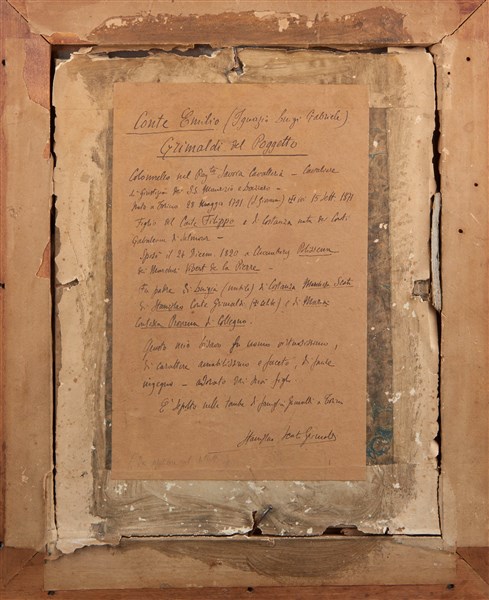 Conte Emilio (Ignazio Luigi Gabriele)
Grimaldi del Poggetto
Colonnello nel Regg.te Savoia Cavalleria - Cavaliere
di Giustizia dei SS Maurizio e Lazzaro -
nato a Torino 28 Maggio 1791 (S. Giovanni) + ivi 15 Sett. 1871
Figlio del Conte Filippo e di Costanza nata dei Conti
Gabaleone di Salmour -
Sposò il 26 Dicem. 1820 a Chambéry Polissena
dei Marchesi Vibert de la Pierre -
Fu padre di Luigia (nubile) di Costanza
di Stanislao Conte Grimaldi (celibe) e di Maria
Contessa Provana di Collegno.
Questo mio bisavo fu uomo
di carattere amabilissimo e faceto, di
ingegno - adorato dai suoi figli
E' sepolto nella tomba di famiglia Grimaldi a Torino
Grimaldi